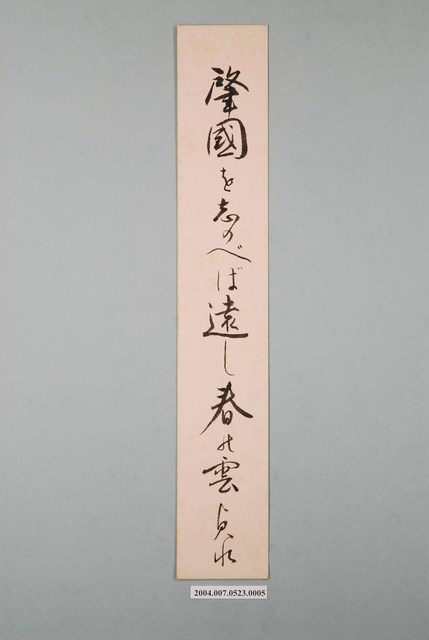 肇國を志のべば遠し春の雲 貞水
2004.007.0523.0005